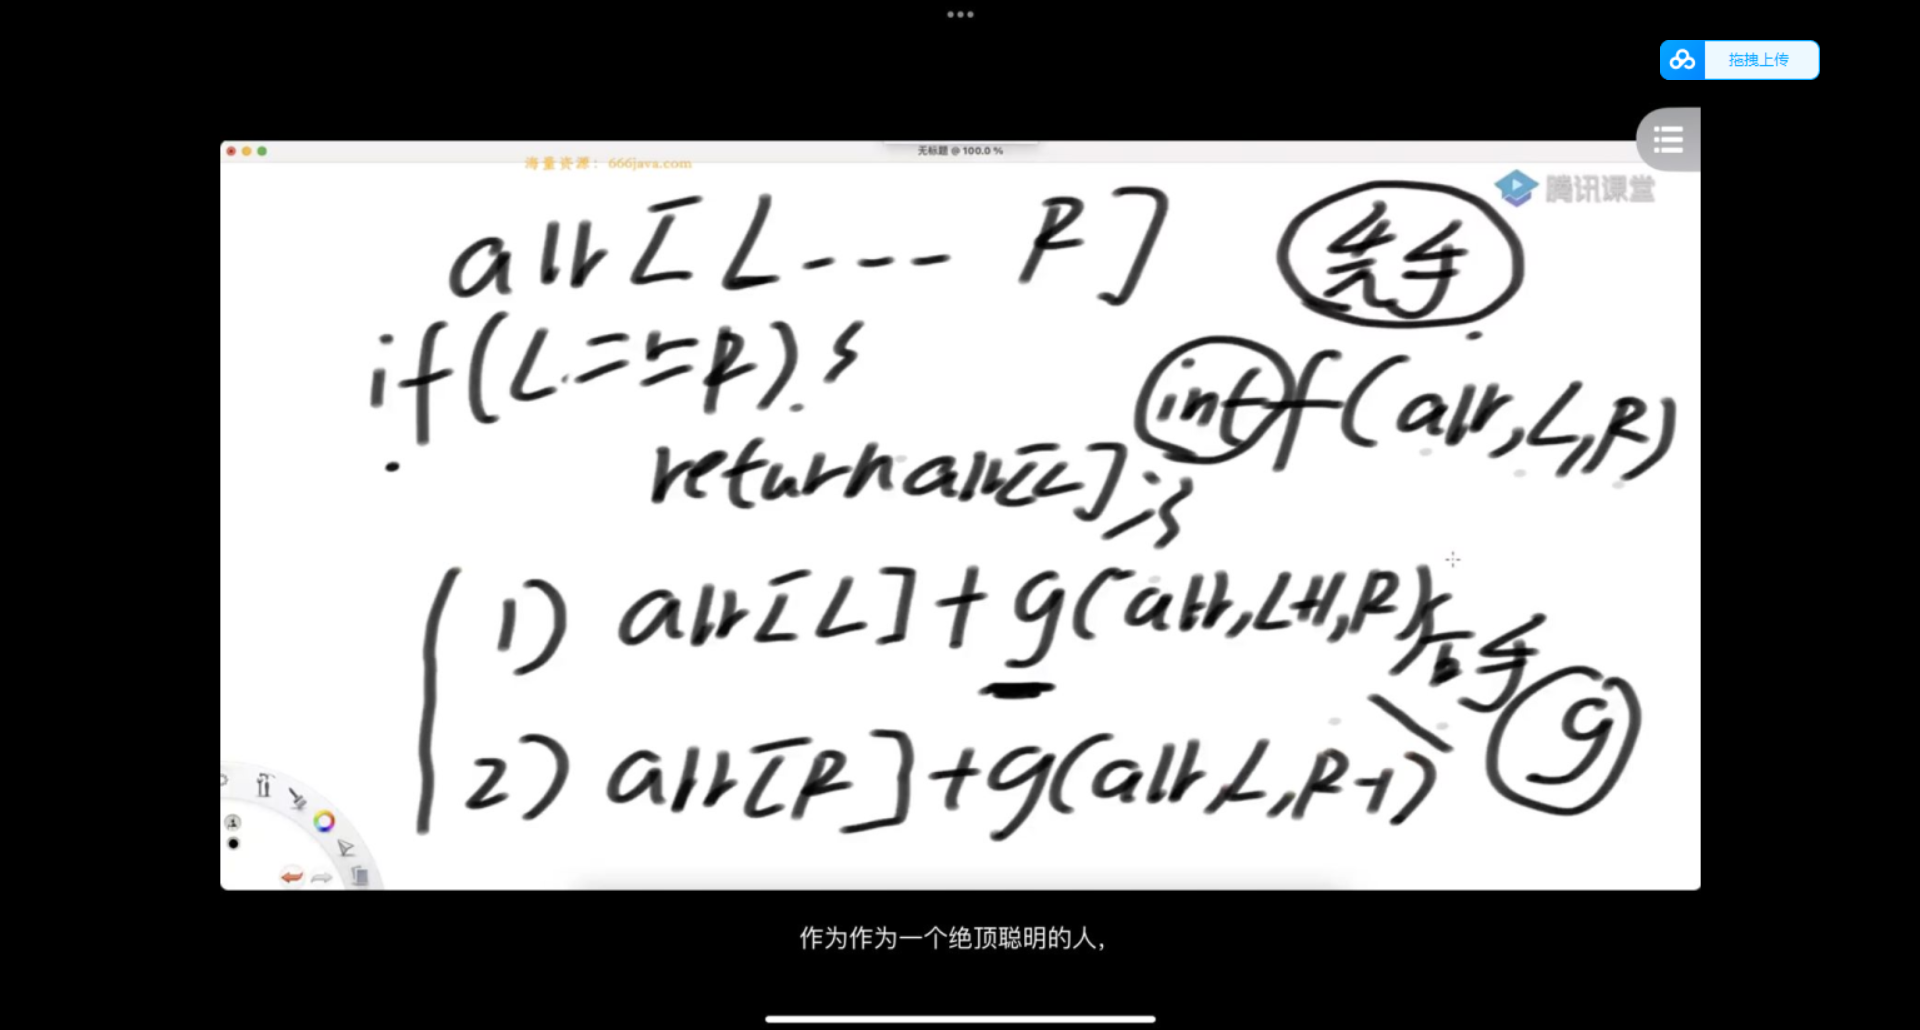 拖拽上传
无标题 @ 100.0 %
海量资源：666java.com
腾讯课堂
arr[L--- R] 先手
if(L==R){
int f(arr,L,R)
return arr[L];}
1) arr[L]+g(arr,L+1,R)
后手 g
2) arr[R]+g(arr,L,R-1)
作为作为一个绝顶聪明的人,